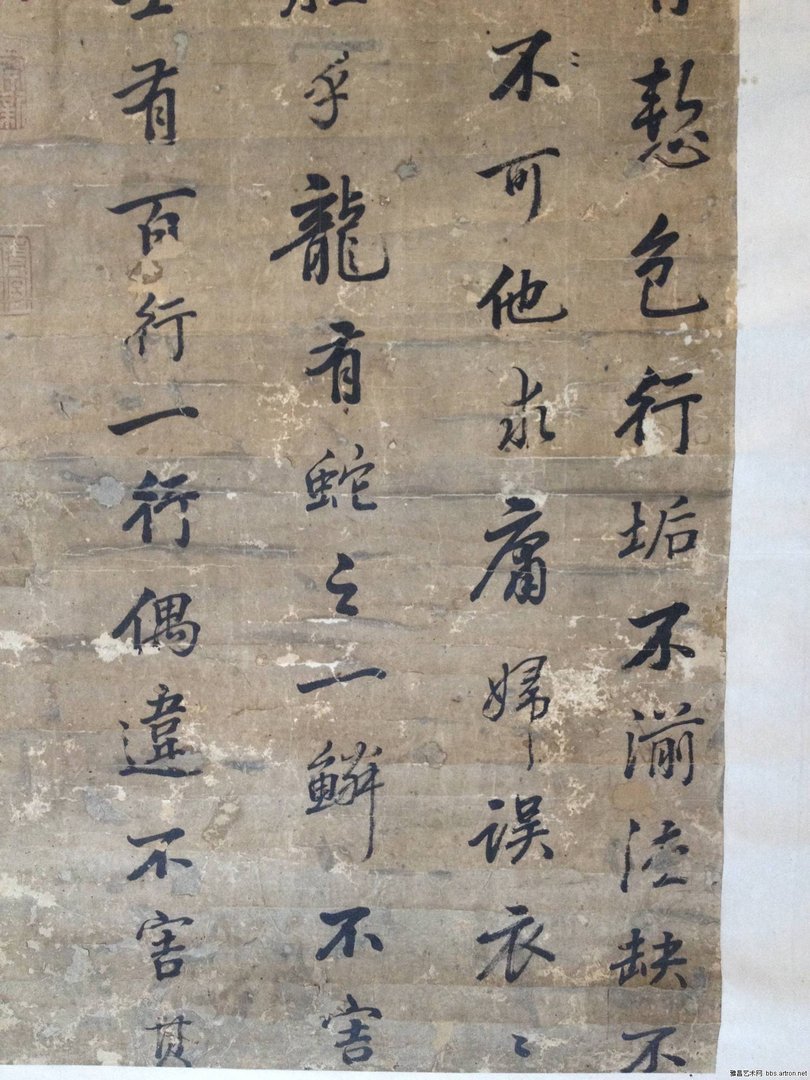 慙色行垢不湔德缺不
不可他求庸婦誤衣
乎龍有蛇之一鱗不害
有百行一行偶違不害其
雅昌艺术网 bbs.artron.net